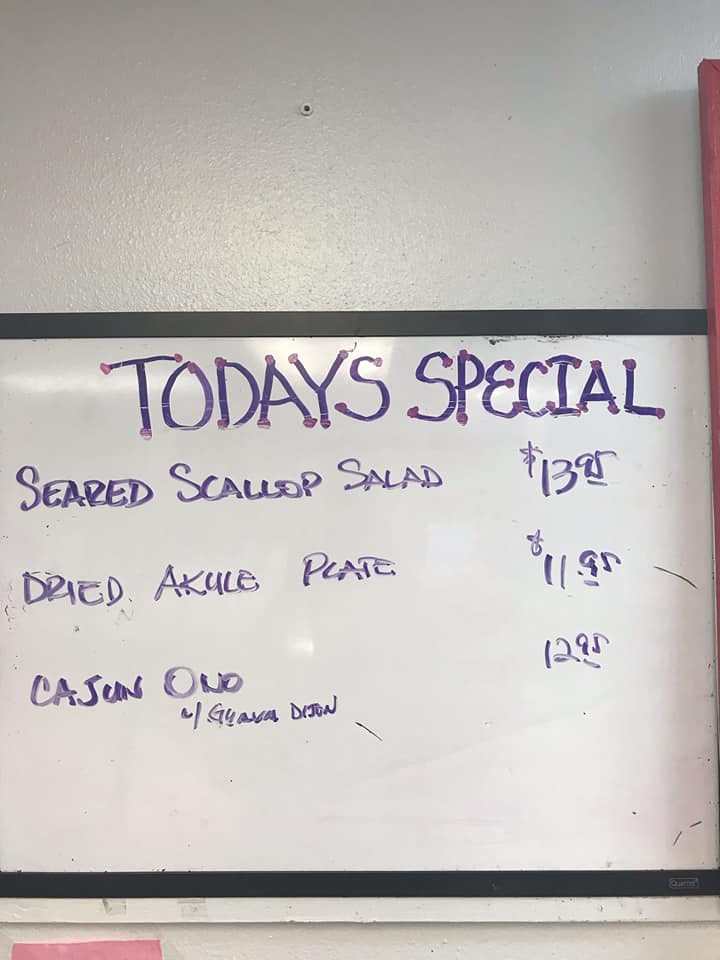 TODAYS SPECIAL
SEARED SCALLOP SALAD $13.95
DRIED AKULE PLATE $11.95
CAJUN ONO 12.95
w/ GUAVA DIJON
Quartet